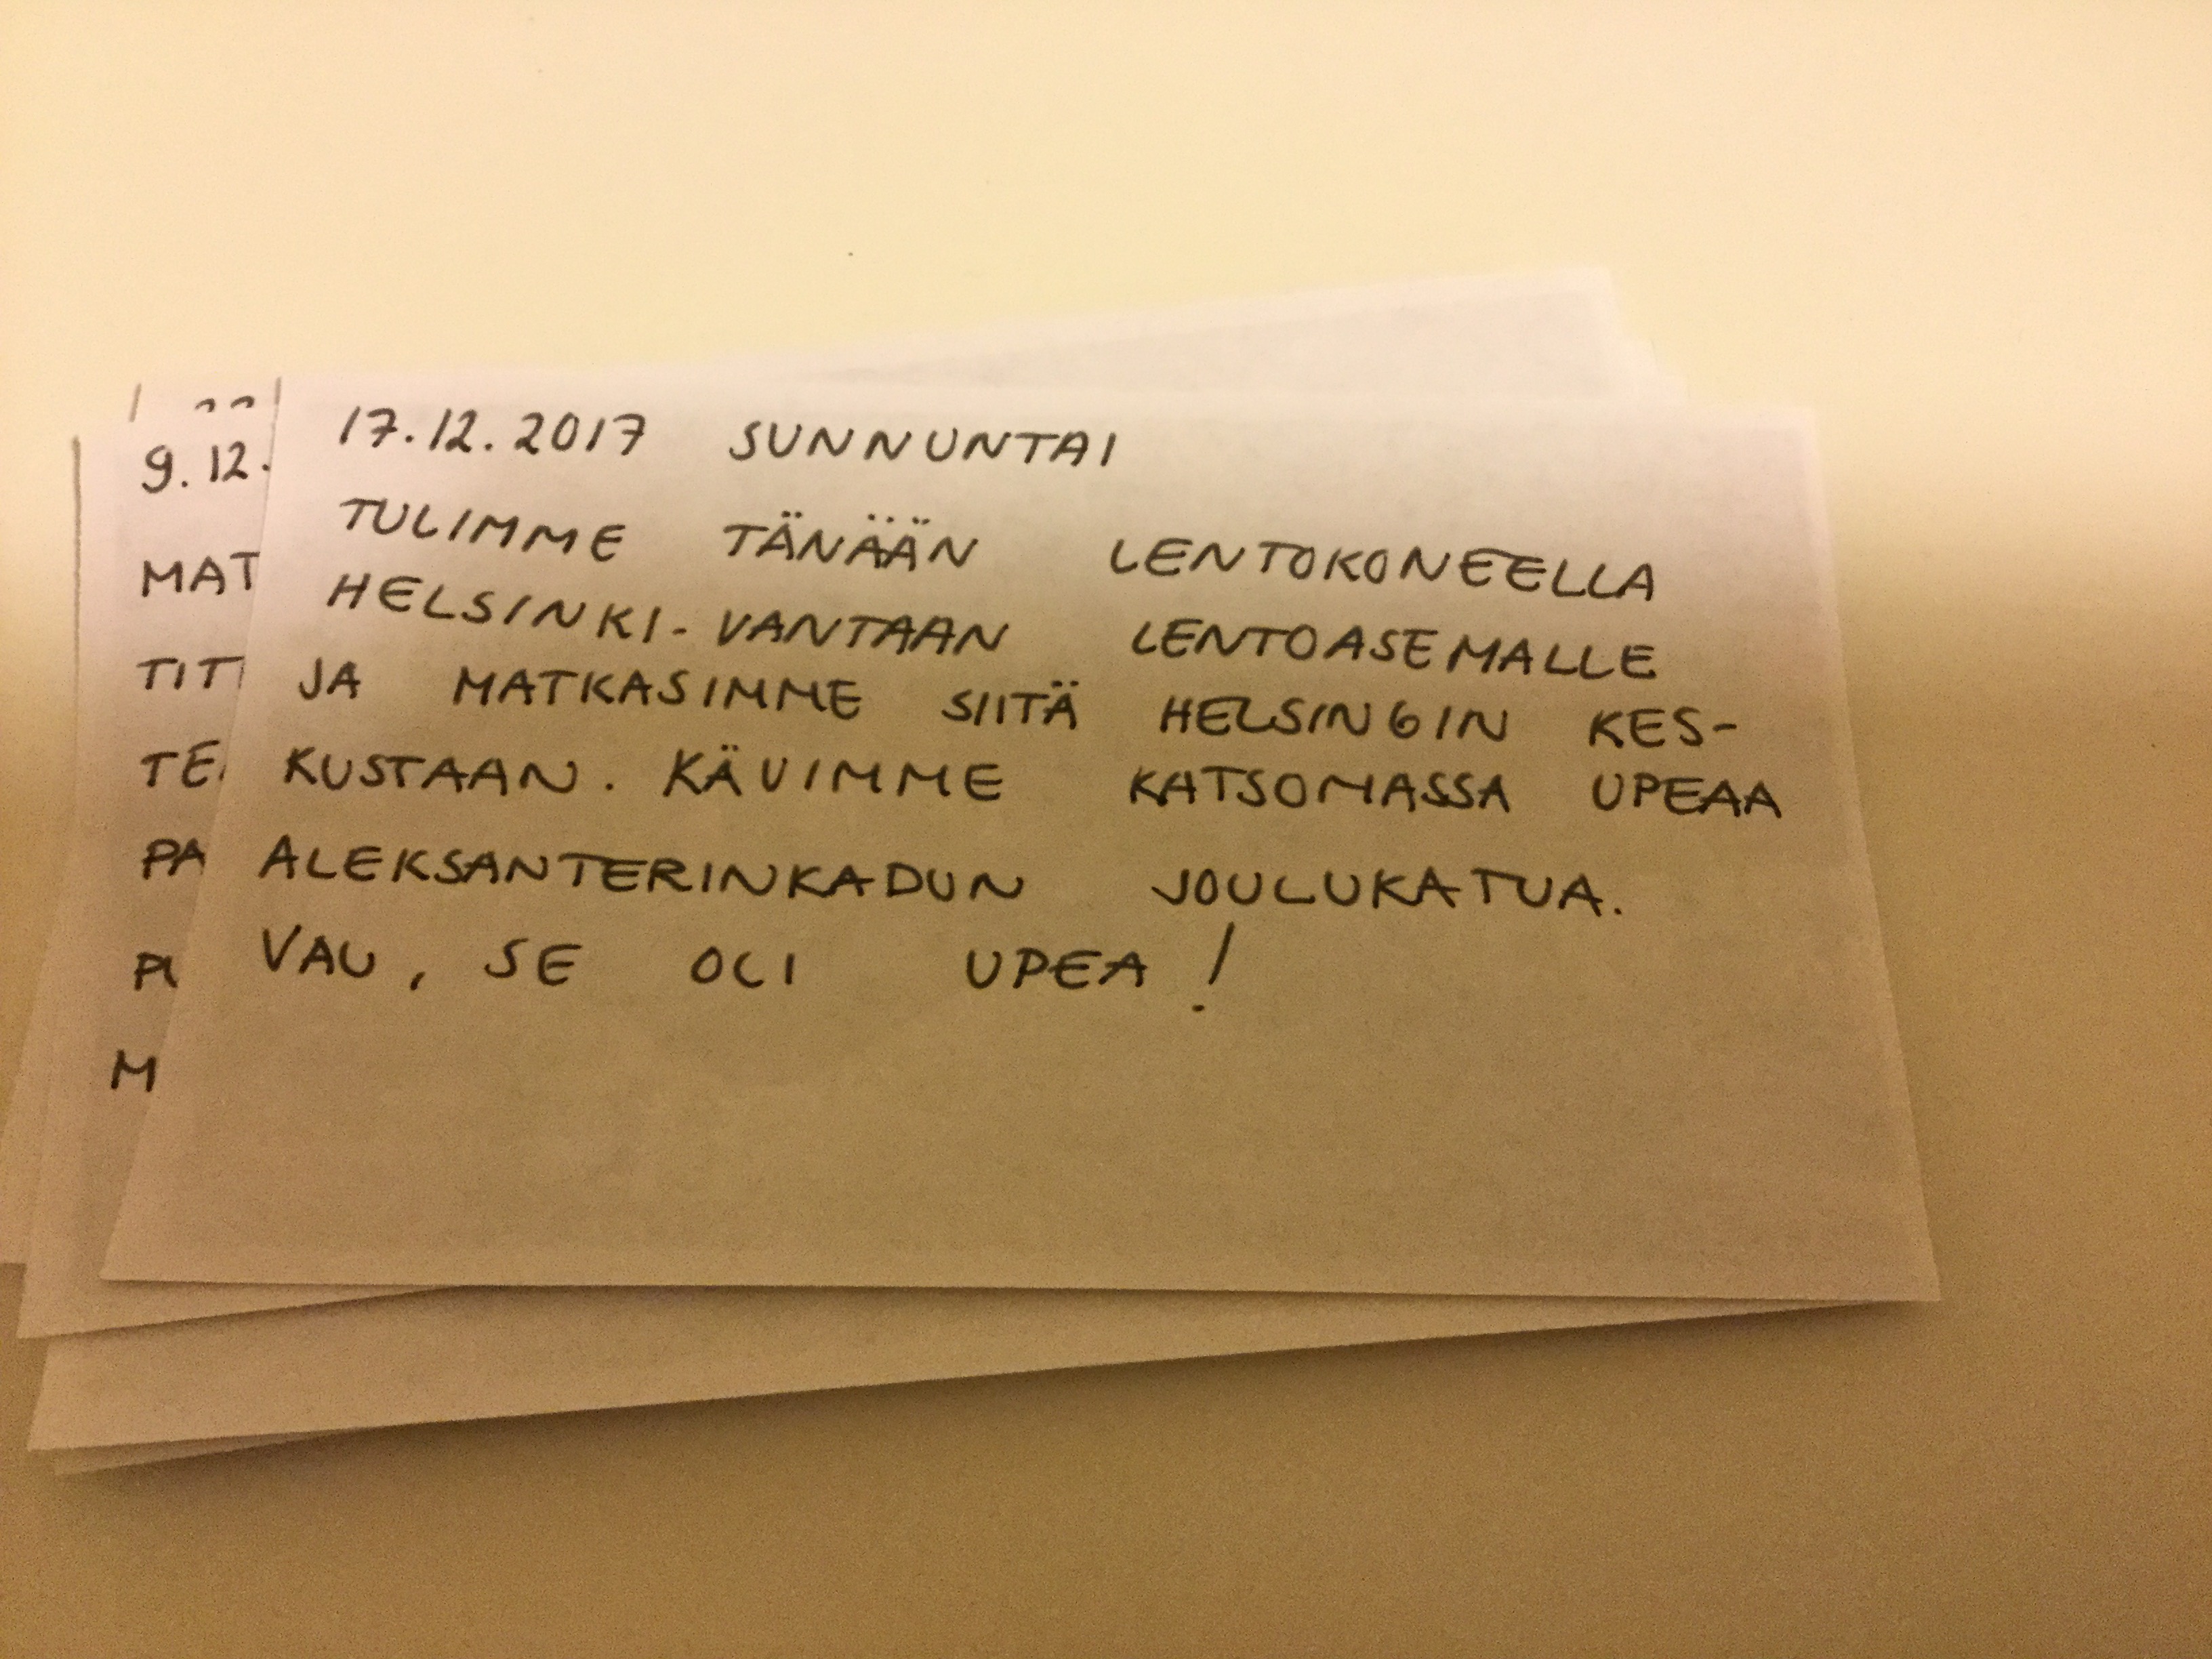 17.12.2017 SUNNUNTAI
TULIMME TÄNÄÄN LENTOKONEELLA
HELSINKI-VANTAAN LENTOASEMALLE
JA MATKASIMME SIITÄ HELSINGIN KES-
KUSTAAN. KÄVIMME KATSOMASSA UPEAA
ALEKSANTERINKADUN JOULUKATUA.
VAU, SE OLI UPEA!
9.12.
MAT
TIT
TE
PA
M